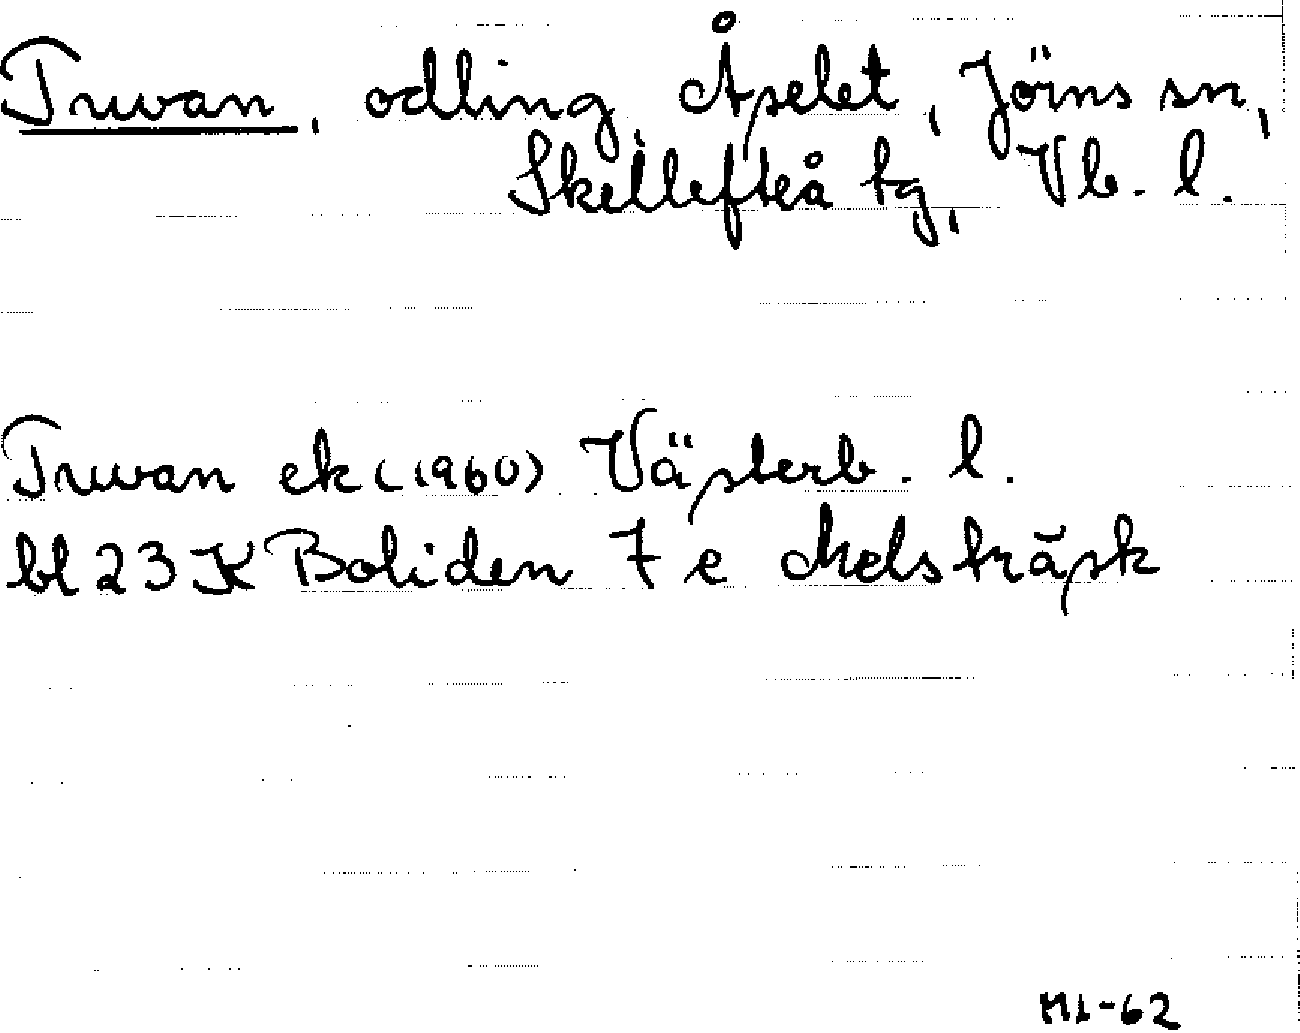 Truvan, odling, Åselet, Jörns sn,
Skellefteå tg, Vb. l.
Truvan ek (1960) Västerb. l.
bl 23 K Boliden 7 e Melsträsk
-62